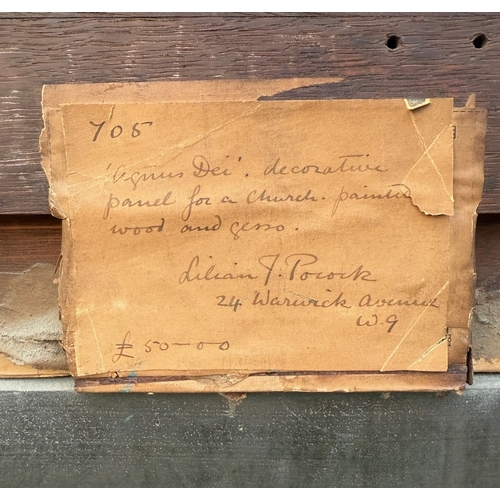 705
'Agnus Dei'. decorative
panel for a Church. painted
wood and gesso.
Lilian J. Pocock
24 Warwick Avenue
W.9
£50-00